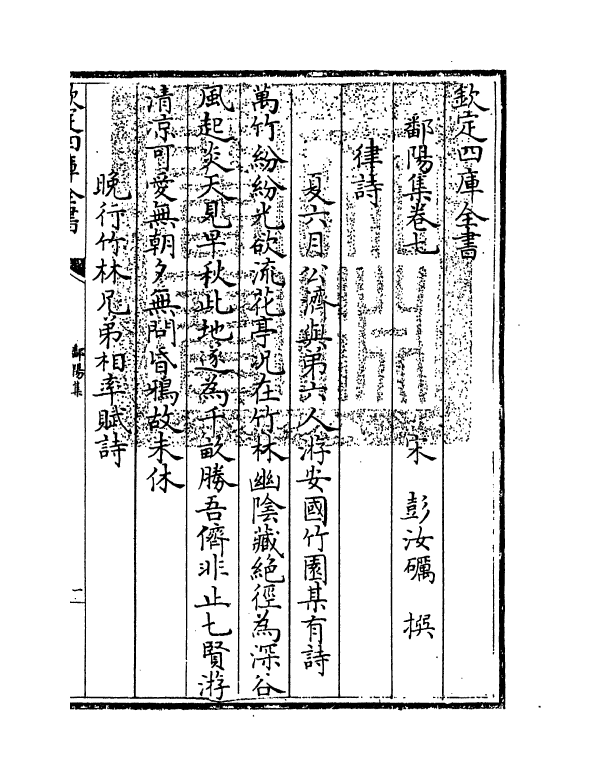 欽定四庫全書
鄱陽集卷七
宋 彭汝礪 撰
律詩
夏六月公濟與弟六人游安國竹園某有詩
萬竹紛紛光欲流花亭況在竹林幽陰藏絶徑為深谷
風起炎天見早秋此地遂為千畝勝吾儕非止七賢游
清凉可愛無朝夕無問昏鴉故未休
晚行竹林兄弟相率賦詩
欽定四庫全書
鄱陽集